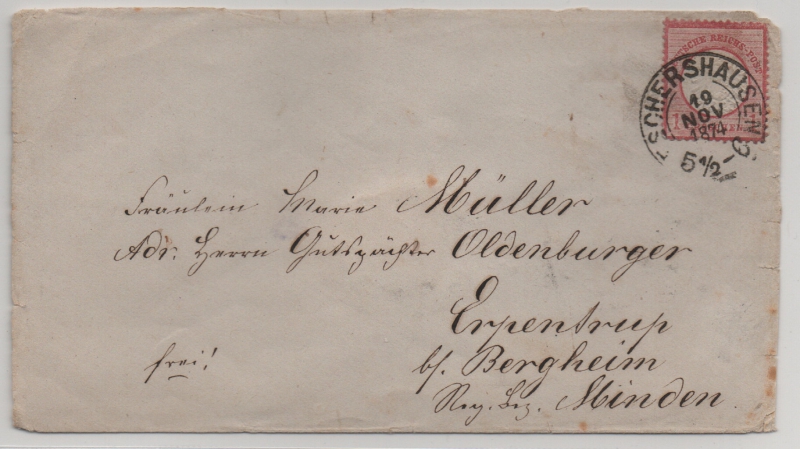 DEUTSCHE REICHS-POST
ESCHERSHAUSEN
19
NOV
1874
5 1/2 - 6
Fräulein Marie Müller
Adr: Herrn Gutspächter Oldenburger
Erpentrup
frei!
bf. Bergheim
Reg. Bez. Minden